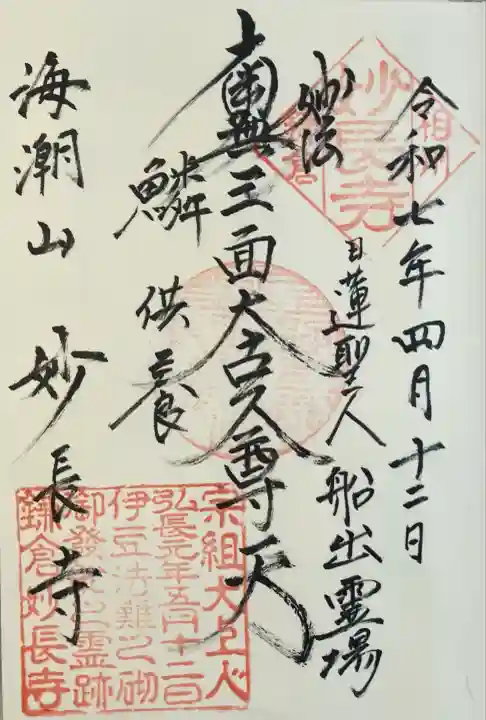 令和七年四月十二日
妙法
日蓮聖人船出霊場
南無三面大古久尊天
鱗供養
海潮山 妙長寺
相州
妙長寺
鎌倉
宗祖大上人
弘長元年五月十二日
伊豆法難之砌
御發船之霊跡
鎌倉妙長寺